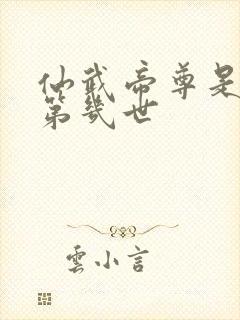 仙武帝尊是
第幾世
雲小言